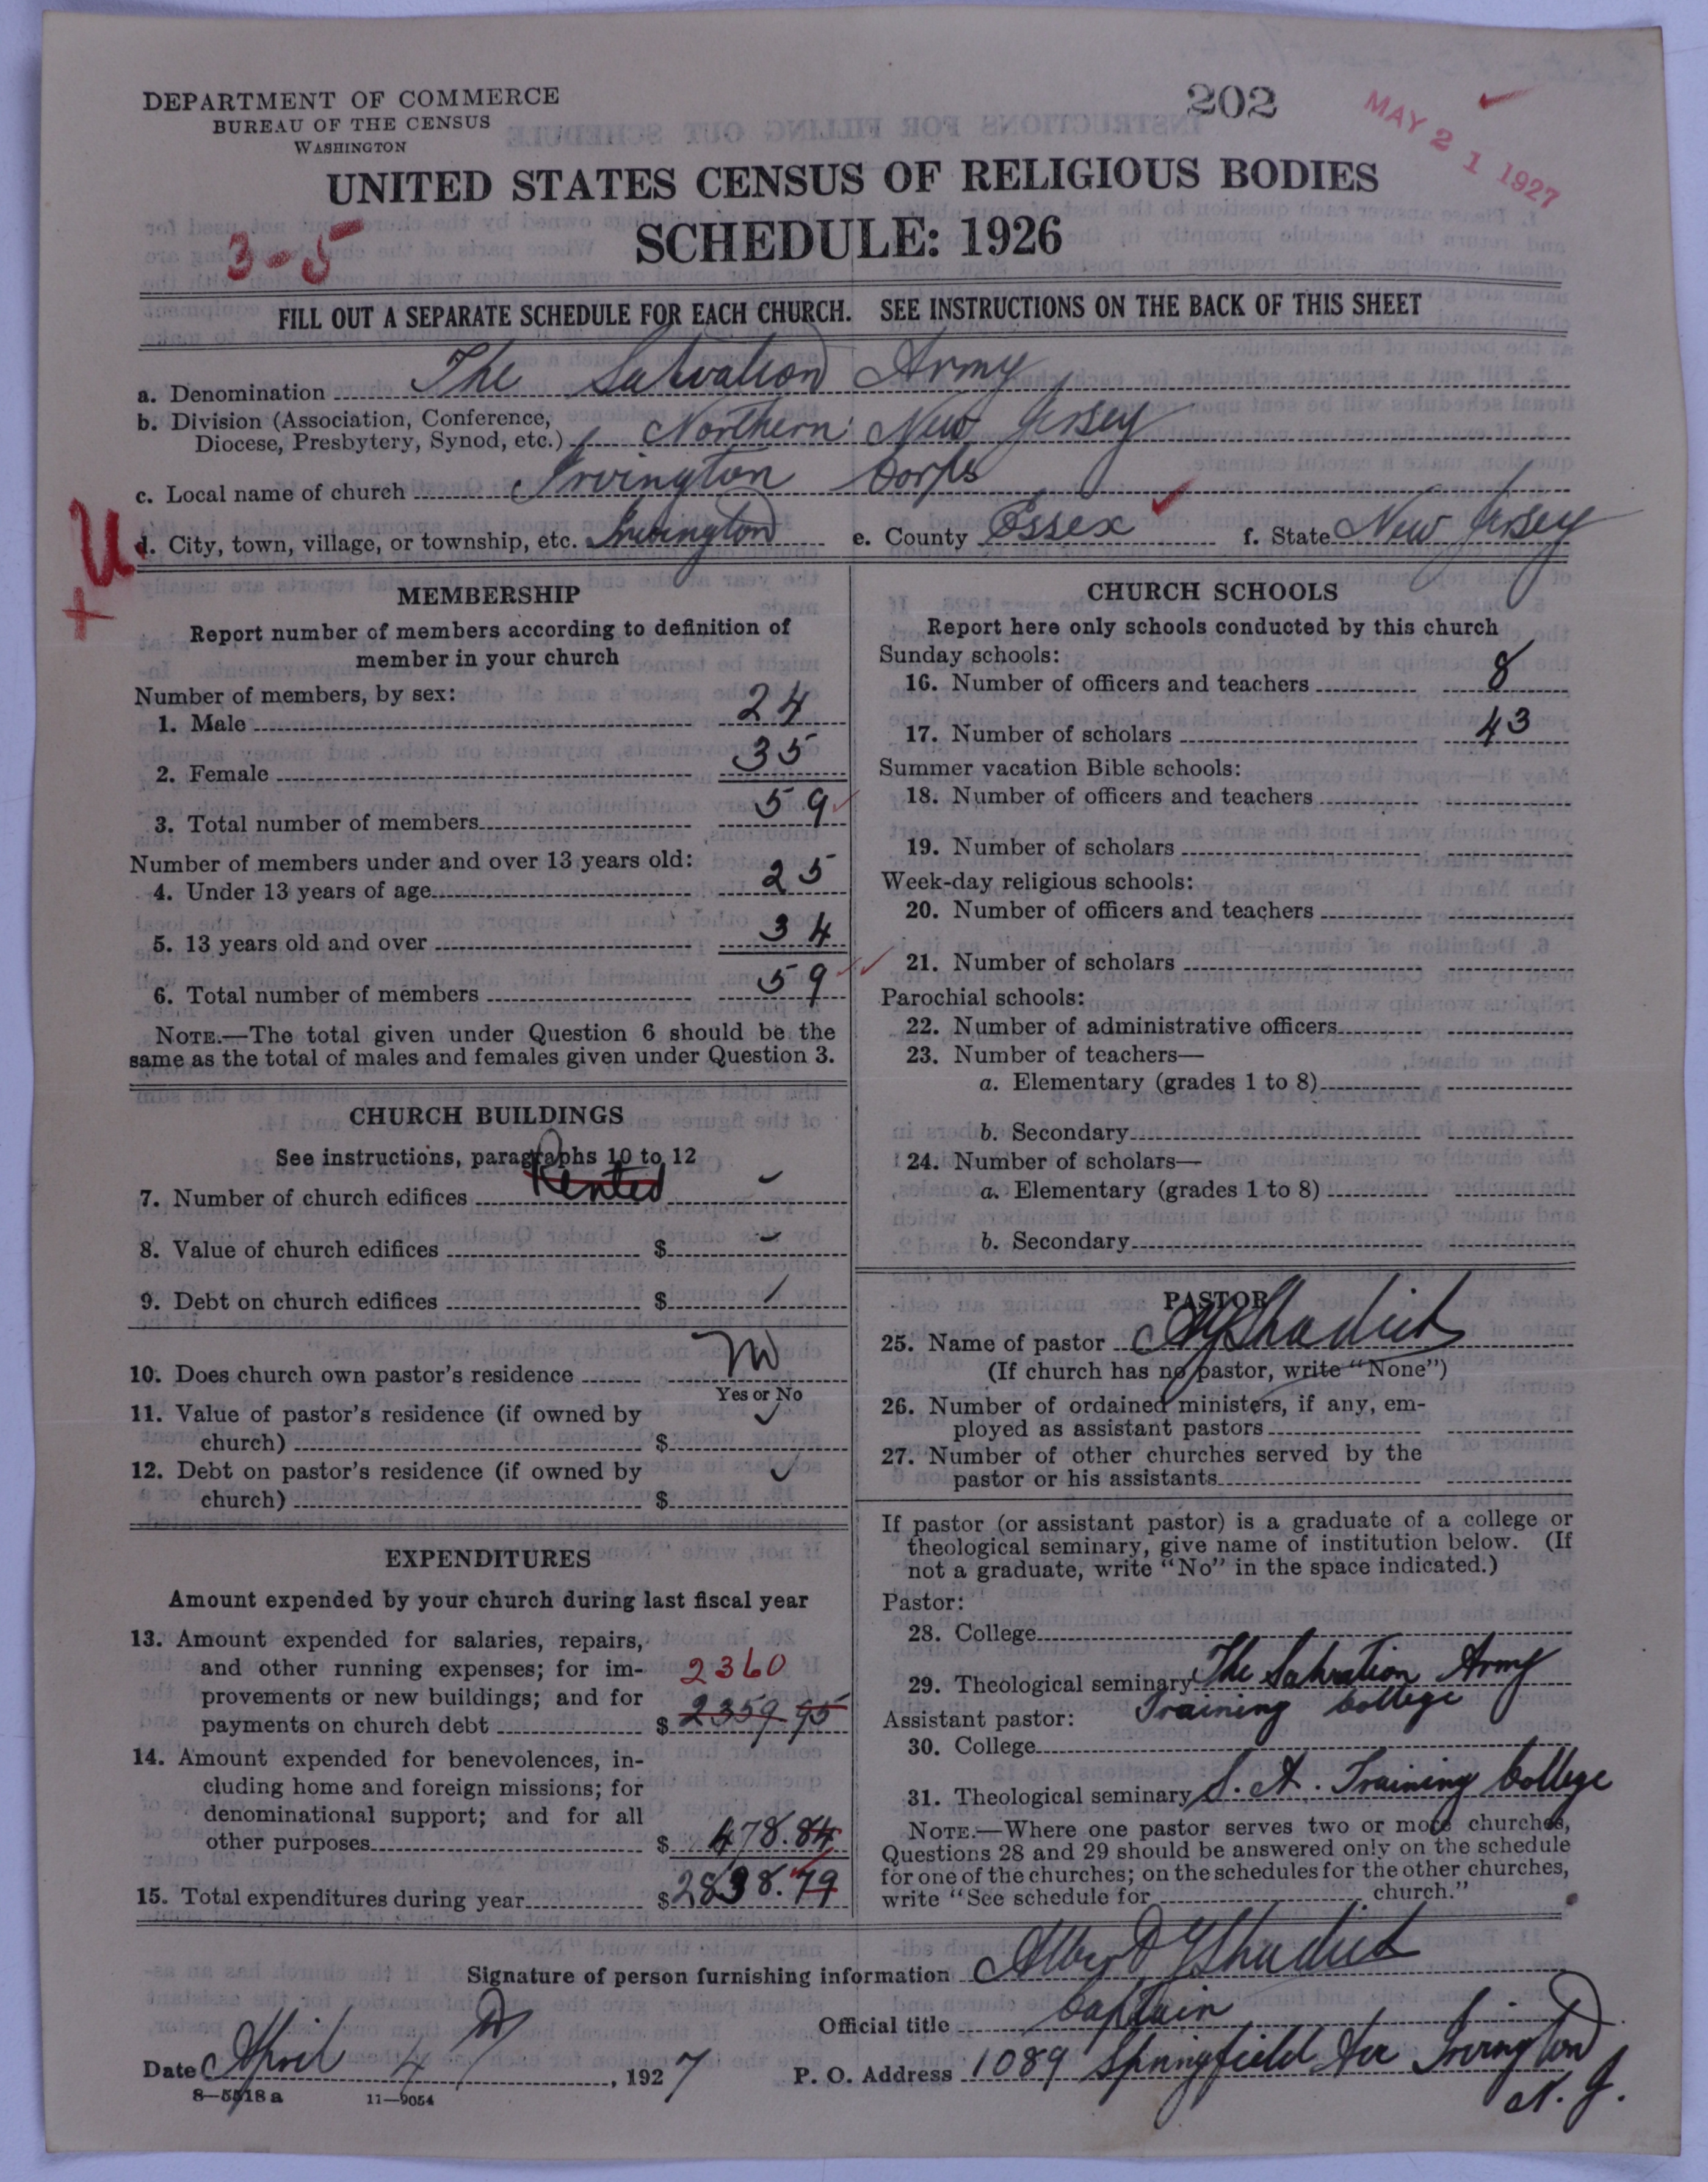 DEPARTMENT OF COMMERCE
BUREAU OF THE CENSUS
WASHINGTON
202
MAY 21 1927
UNITED STATES CENSUS OF RELIGIOUS BODIES
SCHEDULE: 1926
3-5
FILL OUT A SEPARATE SCHEDULE FOR EACH CHURCH. SEE INSTRUCTIONS ON THE BACK OF THIS SHEET
a. Denomination The Salvation Army
b. Division (Association, Conference,
Diocese, Presbytery, Synod, etc.) Northern New Jersey
c. Local name of church Irvington Corps
d. City, town, village, or township, etc. Irvington e. County Essex f. State New Jersey
+U
MEMBERSHIP
Report number of members according to definition of
member in your church
Number of members, by sex:
1. Male 24
2. Female 35
3. Total number of members 59
Number of members under and over 13 years old:
4. Under 13 years of age 25
5. 13 years old and over 34
6. Total number of members 59
NOTE.—The total given under Question 6 should be the
same as the total of males and females given under Question 3.
CHURCH BUILDINGS
See instructions, paragraphs 10 to 12
7. Number of church edifices Rented
8. Value of church edifices $
9. Debt on church edifices $
10. Does church own pastor's residence No
Yes or No
11. Value of pastor's residence (if owned by
church) $
12. Debt on pastor's residence (if owned by
church) $
EXPENDITURES
Amount expended by your church during last fiscal year
13. Amount expended for salaries, repairs,
and other running expenses; for im-
2360
provements or new buildings; and for
payments on church debt $ 2359.95
14. Amount expended for benevolences, in-
cluding home and foreign missions; for
denominational support; and for all
other purposes $ 478.84
15. Total expenditures during year $ 2838.79
CHURCH SCHOOLS
Report here only schools conducted by this church
Sunday schools:
16. Number of officers and teachers 8
17. Number of scholars 43
Summer vacation Bible schools:
18. Number of officers and teachers
19. Number of scholars
Week-day religious schools:
20. Number of officers and teachers
21. Number of scholars
Parochial schools:
22. Number of administrative officers
23. Number of teachers—
a. Elementary (grades 1 to 8)
b. Secondary
24. Number of scholars—
a. Elementary (grades 1 to 8)
b. Secondary
PASTOR
25. Name of pastor
(If church has no pastor, write "None")
26. Number of ordained ministers, if any, em-
ployed as assistant pastors
27. Number of other churches served by the
pastor or his assistants
If pastor (or assistant pastor) is a graduate of a college or
theological seminary, give name of institution below. (If
not a graduate, write "No" in the space indicated.)
Pastor:
28. College
29. Theological seminary The Salvation Army
Training College
Assistant pastor:
30. College
31. Theological seminary S. A. Training College
NOTE.—Where one pastor serves two or more churches,
Questions 28 and 29 should be answered only on the schedule
for one of the churches; on the schedules for the other churches,
write "See schedule for church."
Signature of person furnishing information Albert
Official title Captain
Date April 4, 1927 P. O. Address 1089 Springfield Ave Irvington
N. J.
8—5518 a 11—9054